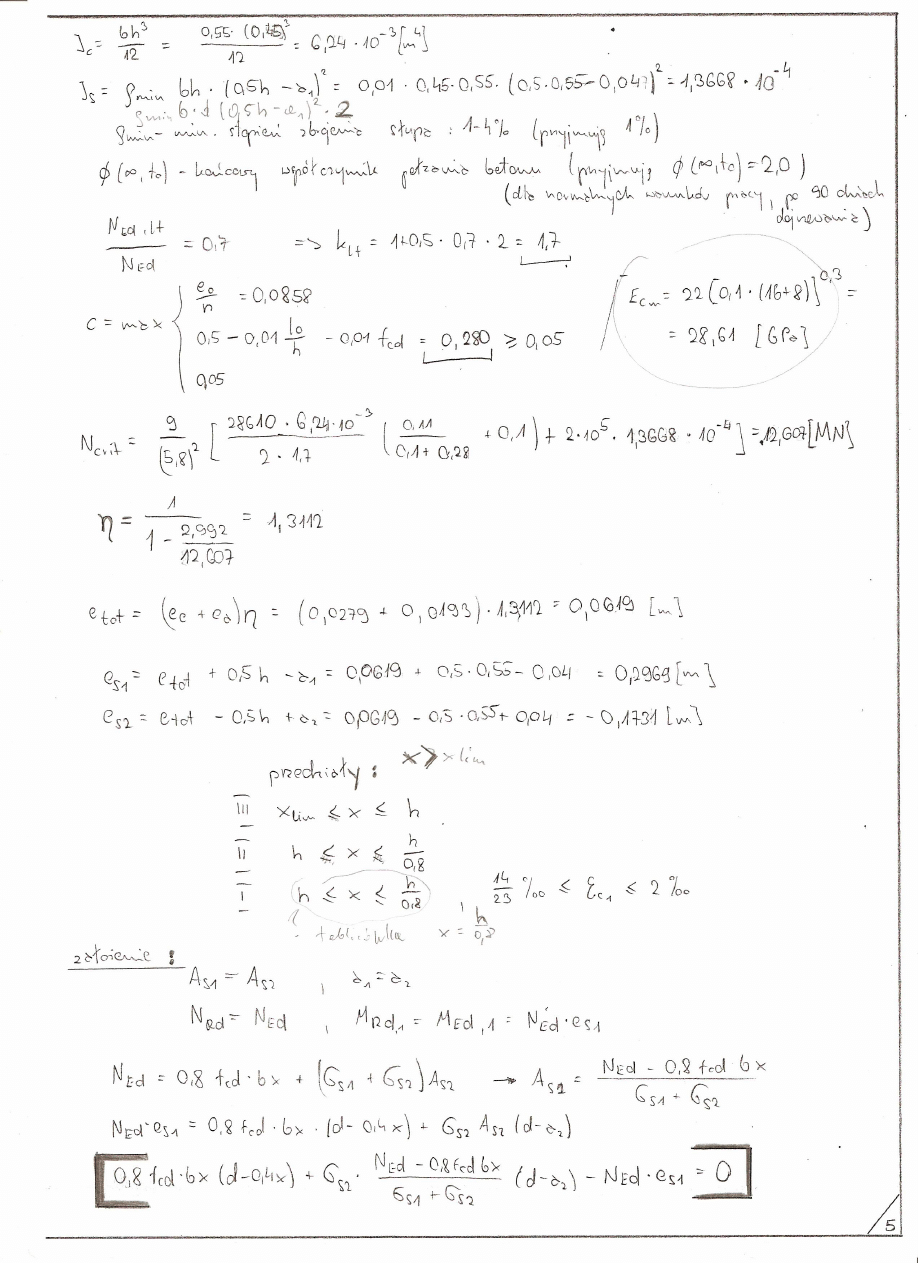 J_c = bh³/12 = 0,55 · (0,45)³/12 = 6,24 · 10⁻³ [m⁴]
J_s = ρmin bh · (0,5h - a₁)² = 0,01 · 0,45 · 0,55 · (0,5 · 0,55 - 0,04)² = 1,3668 · 10⁻⁴
ρmin b · d (0,5h - a₁)² · 2
ρmin - min. stopień zbrojenia słupa : 1-4% (przyjmuję 1%)
φ(∞, t₀) - końcowy współczynnik pełzania betonu (przyjmuję φ(∞, t₀) = 2,0)
(dla normalnych warunków pracy, po 90 dniach
dojrzewania)
N_Ed,lt / N_Ed = 0,7 => k_lt = 1+0,5 · 0,7 · 2 = 1,7
E_cm = 22 [0,1 · (16+8)]^0,3 =
= 28,61 [GPa]
c = max { e₀/h = 0,0858
0,5 - 0,01 l₀/h - 0,01 fcd = 0,280 ≥ 0,05
0,05
N_crit = 9/(5,8)² [ 28610 · 6,24 · 10⁻³ / 2 · 1,7 ( 0,11 / 0,1 + 0,28 + 0,1 ) + 2 · 10⁵ · 1,3668 · 10⁻⁴ ] = 12,607 [MN]
η = 1 / (1 - 2,992/12,607) = 1,3112
e_tot = (e_e + e_a) η = (0,0279 + 0,0193) · 1,3112 = 0,0619 [m]
e_s1 = e_tot + 0,5h - a₁ = 0,0619 + 0,5 · 0,55 - 0,04 = 0,2969 [m]
e_s2 = e_tot - 0,5h + a₂ = 0,0619 - 0,5 · 0,55 + 0,04 = - 0,1731 [m]
przedziały : x > x lim
III x_lim ≤ x ≤ h
II h ≤ x ≤ h/0,8
I h ≤ x ≤ h/0,8 , 14/23 ‰ ≤ ε_c1 ≤ 2 ‰
x = h/0,8
założenie :
A_s1 = A_s2 , a₁ = a₂
N_Rd = N_Ed , M_Rd,1 = M_Ed,1 = N_Ed · e_s1
N_Ed = 0,8 fcd · bx + (σ_s1 + σ_s2) A_s2 → A_s2 = N_Ed - 0,8 fcd bx / σ_s1 + σ_s2
N_Ed · e_s1 = 0,8 fcd · bx · (d - 0,4x) + σ_s2 A_s2 (d - a₂)
0,8 fcd · bx (d - 0,4x) + σ_s2 · N_Ed - 0,8 fcd bx / σ_s1 + σ_s2 (d - a₂) - N_Ed · e_s1 = 0
5